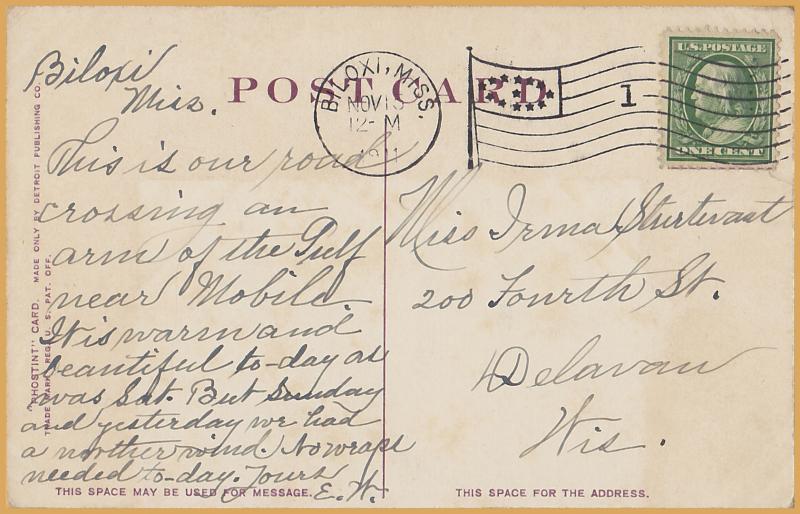 Biloxi
Miss.
POST CARD
BILOXI, MISS.
NOV 15
12-M
1911
1
U.S. POSTAGE
ONE CENT
This is our road
crossing an
arm of the Gulf
near Mobile.
It is warm and
beautiful to-day as
was Sat. But Sunday
and yesterday we had
a norther wind. No wraps
needed to-day. Yours
E. W.
Miss Irma Sturtevant
200 Fourth St.
Delavan
Wis.
"PHOSTINT" CARD. MADE ONLY BY DETROIT PUBLISHING CO.
TRADE MARK REG. U. S. PAT. OFF.
THIS SPACE MAY BE USED FOR MESSAGE.
THIS SPACE FOR THE ADDRESS.